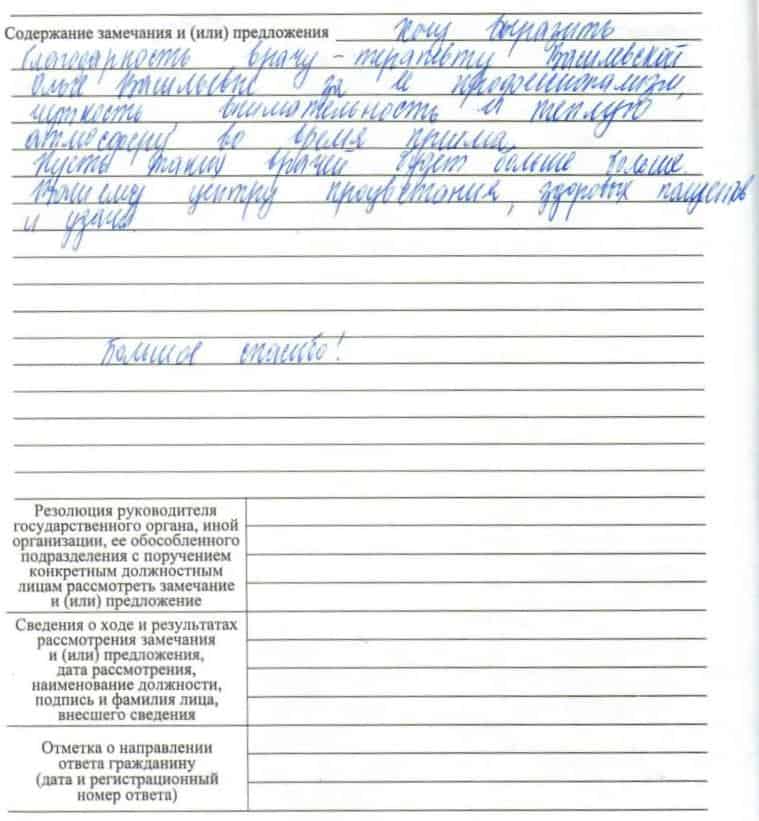 Содержание замечания и (или) предложения Хочу выразить
благодарность врачу-терапевту Василевской
Ольге Васильевне за ее профессионализм,
чуткость, внимательность и теплую
атмосферу во время приема.
Пусть таких врачей будет больше больше.
Вашему центру процветания, здоровых пациентов
и удачи.
Большое спасибо!
Резолюция руководителя
государственного органа, иной
организации, ее обособленного
подразделения с поручением
конкретным должностным
лицам рассмотреть замечание
и (или) предложение
Сведения о ходе и результатах
рассмотрения замечания
и (или) предложения,
дата рассмотрения,
наименование должности,
подпись и фамилия лица,
внесшего сведения
Отметка о направлении
ответа гражданину
(дата и регистрационный
номер ответа)